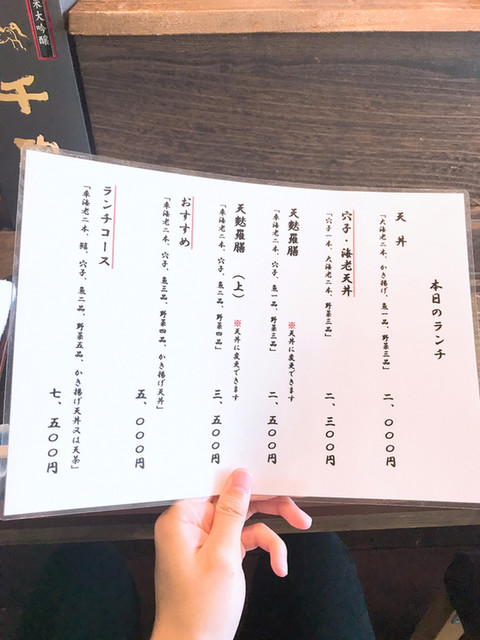 本日のランチ
天丼
「大海老二本、かき揚げ、魚一品、野菜三品」
二、〇〇〇円
穴子・海老天丼
「穴子一本、大海老二本、野菜三品」
二、三〇〇円
天麩羅膳
※天丼に変更できます
「車海老二本、穴子、魚一品、野菜三品」
二、五〇〇円
天麩羅膳（上）
※天丼に変更できます
「車海老二本、穴子、魚二品、野菜四品」
三、五〇〇円
おすすめ
「車海老二本、穴子、魚三品、野菜四品、かき揚げ天丼」
五、〇〇〇円
ランチコース
「車海老二本、穴子、魚二品、野菜五品、かき揚げ天丼又は天茶」
七、五〇〇円
米大吟醸
千